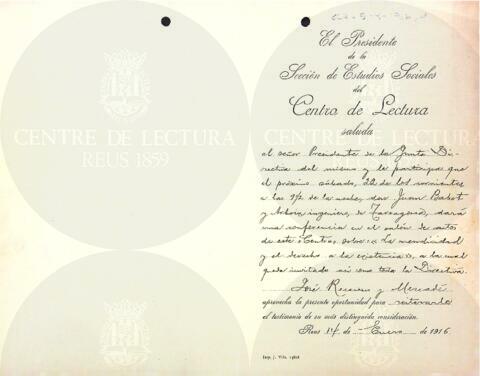 CENTRE DE LECTURA
REUS 1859
El Presidente
de la
Sección de Estudios Sociales
del
Centro de Lectura
saluda
al señor Presidente de la Junta Di-
rectiva del mismo y le participa que
el próximo sábado, 22 de los corrientes
a las 9½ de la noche, don Juan
y ingeniero, de Tarragona, dará
una conferencia en el salón de actos
de este Centro, sobre: « La mendicidad
y el derecho a la existencia », a la cual
queda invitado así como toda la Directiva.
José y Mercadé
aprovecha la presente oportunidad para reiterarle
el testimonio de su más distinguida consideración.
Reus 14 de Enero de 1916
Imp. J. Vila,